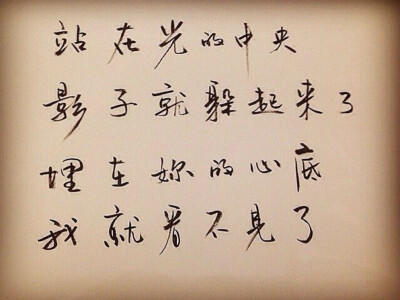 站在光的中央
影子就躲起来了
埋在妳的心底
我就看不見了